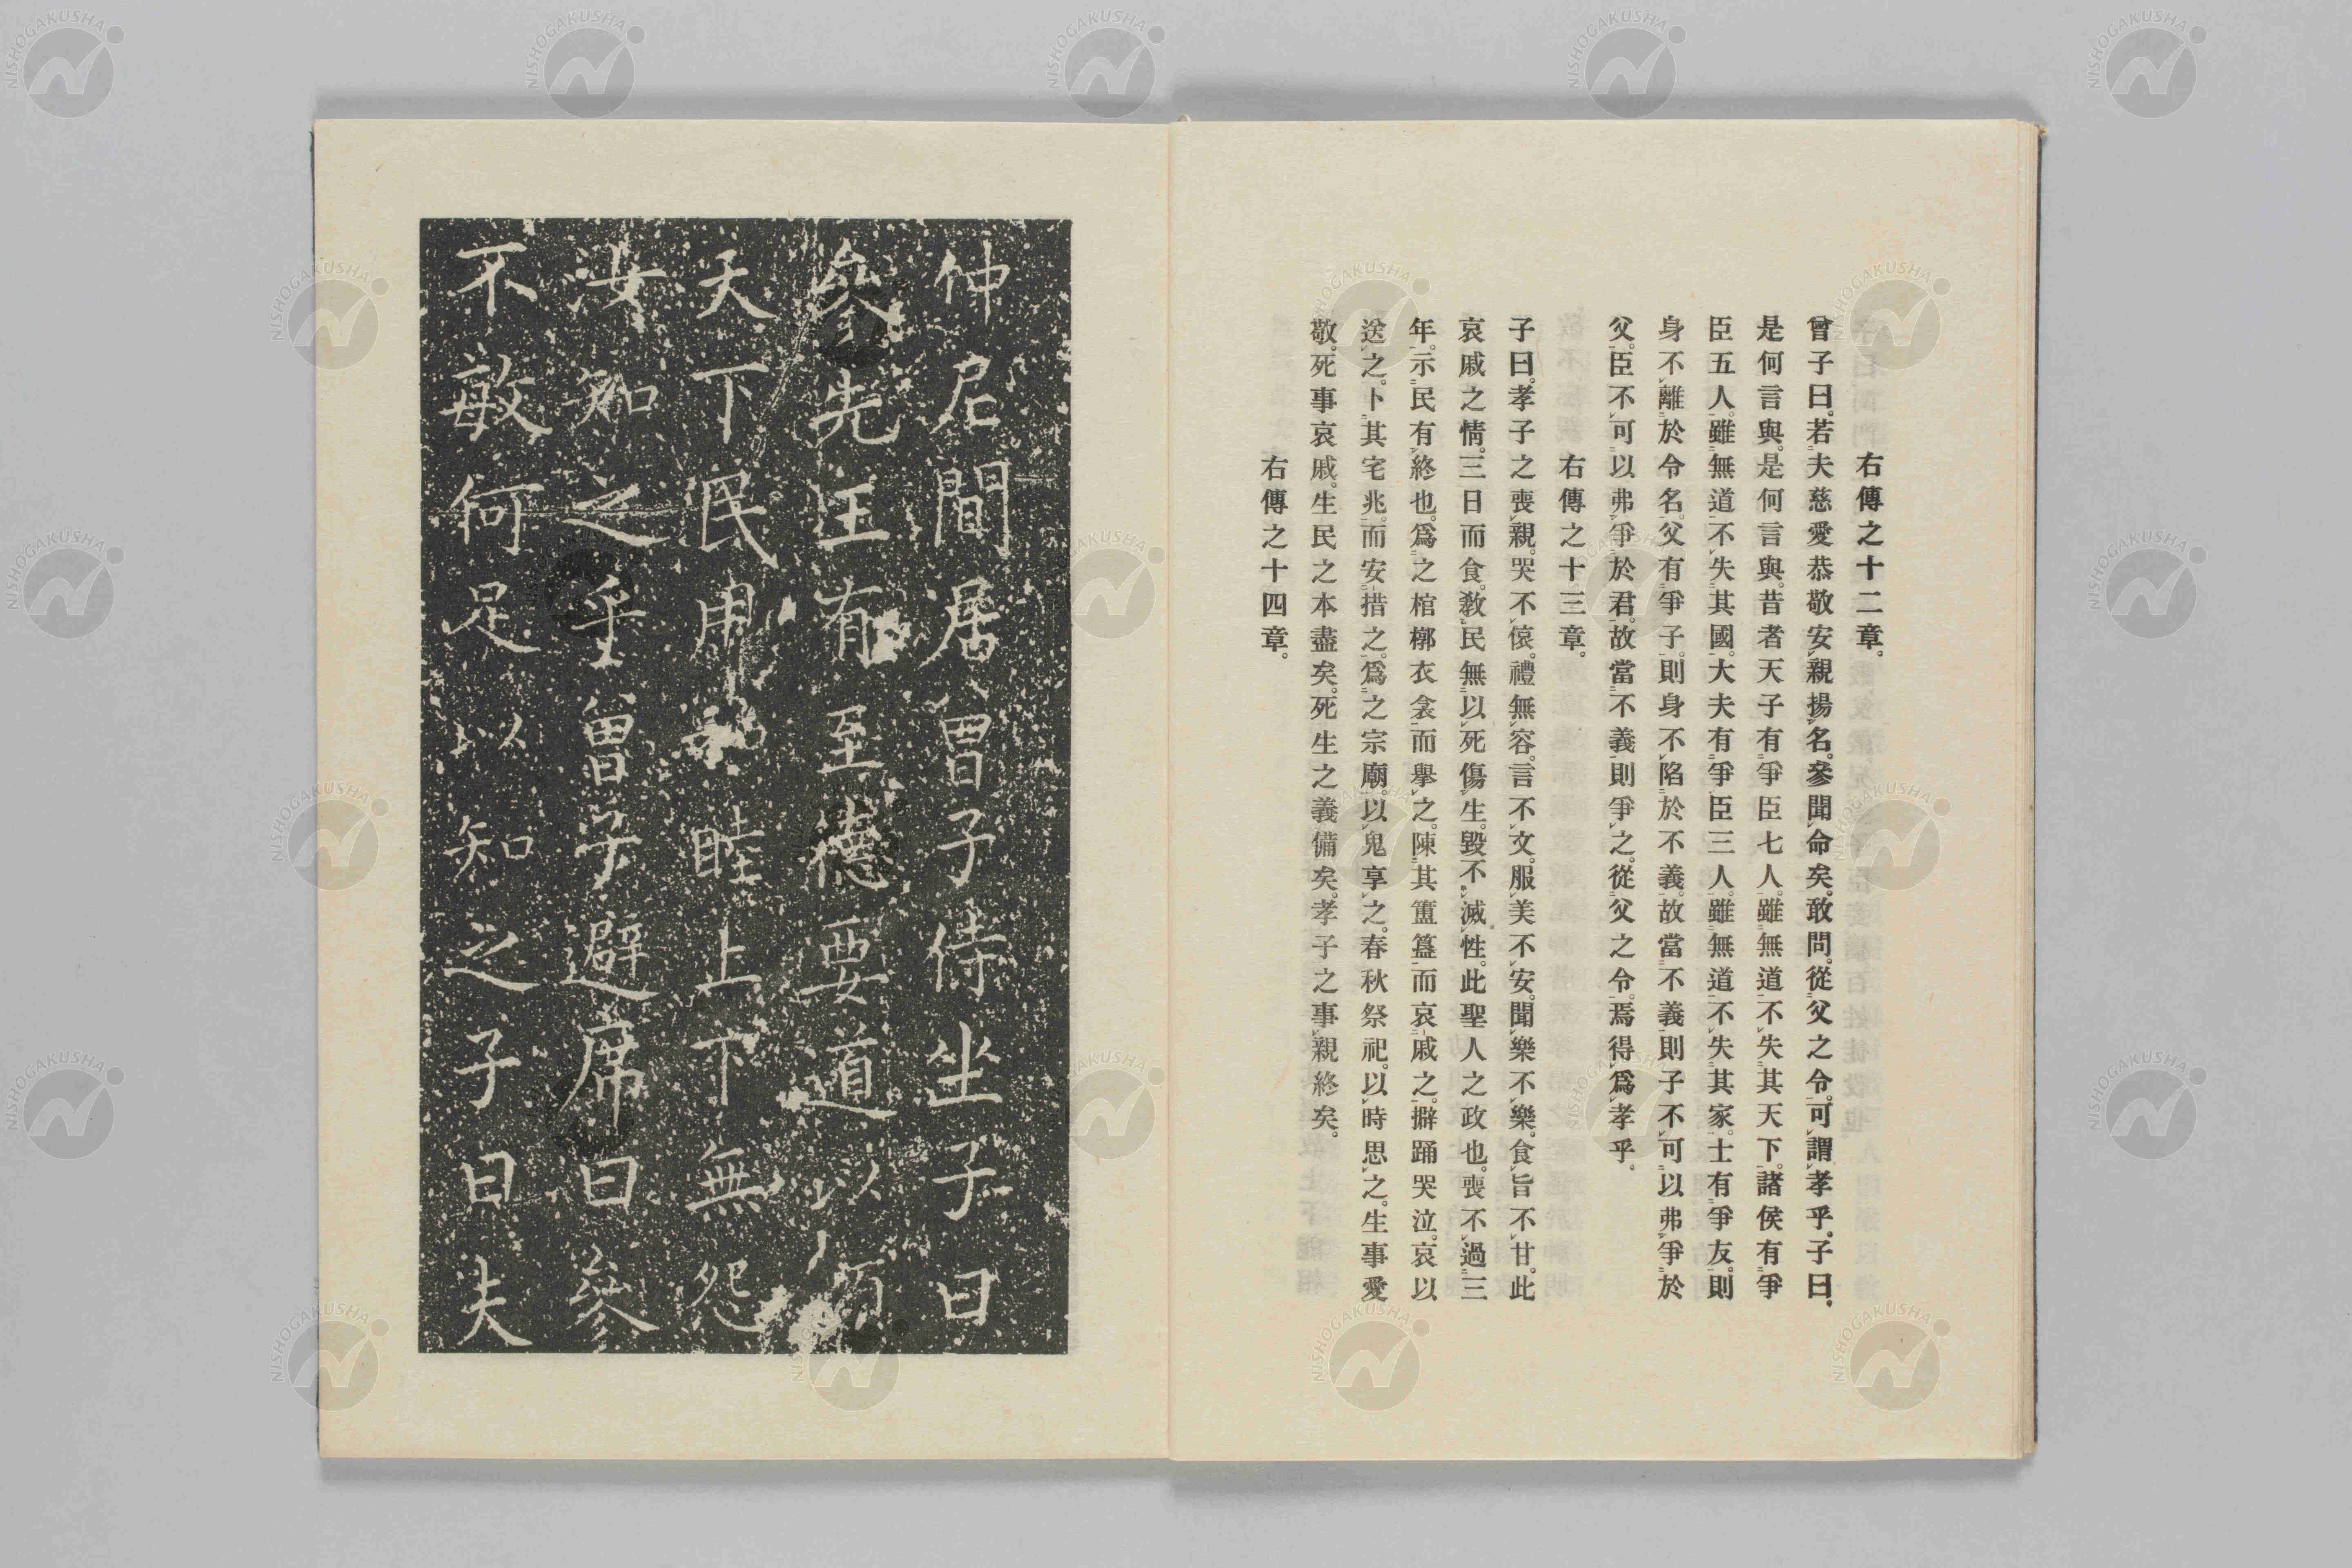 右傳之十二章。
曾子曰。若夫慈愛恭敬安親揚名。參聞命矣。敢問。從父之令。可謂孝乎。子曰。
是何言與。是何言與。昔者天子有爭臣七人。雖無道不失其天下。諸侯有爭
臣五人。雖無道不失其國。大夫有爭臣三人。雖無道不失其家。士有爭友。則
身不離於令名。父有爭子。則身不陷於不義。故當不義則子不可以弗爭於
父。臣不可以弗爭於君。故當不義則爭之。從父之令。焉得爲孝乎。
右傳之十三章。
子曰。孝子之喪親。哭不偯。禮無容。言不文。服美不安。聞樂不樂。食旨不甘。此
哀戚之情。三日而食。敎民無以死傷生。毀不滅性。此聖人之政也。喪不過三
年。示民有終也。爲之棺槨衣衾而擧之。陳其簠簋而哀戚之。擗踊哭泣。哀以
送之。卜其宅兆。而安措之。爲之宗廟。以鬼享之。春秋祭祀。以時思之。生事愛
敬。死事哀戚。生民之本盡矣。死生之義備矣。孝子之事親終矣。
右傳之十四章。
仲尼閒居曾子侍坐子曰
參先王有至德要道以順
天下民用和睦上下無怨
汝知之乎曾子避席曰參
不敏何足以知之子曰夫
NISHOGAKUSHA